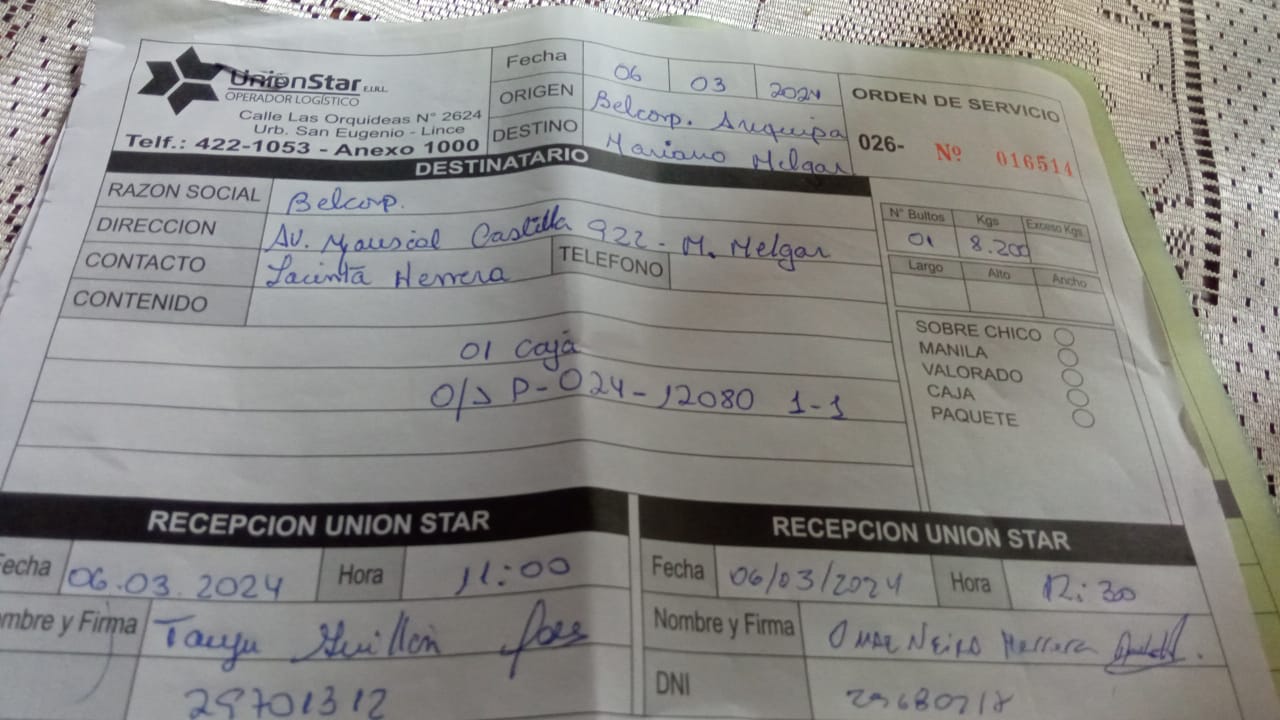 UnionStar E.I.R.L.
OPERADOR LOGÍSTICO
Calle Las Orquideas N° 2624
Urb. San Eugenio - Lince
Telf.: 422-1053 - Anexo 1000
Fecha 06 03 2024
ORIGEN Belcorp. Arequipa
DESTINO Mariano Melgar
ORDEN DE SERVICIO
026- Nº 016514
DESTINATARIO
RAZON SOCIAL Belcorp.
DIRECCION Av. Mariscal Castilla 922 - M. Melgar
CONTACTO Jacinta Herrera TELEFONO
CONTENIDO
01 Caja
O/S P-024-12080 1-1
N° Bultos Kgs Exceso Kgs.
01 8.200
Largo Alto Ancho
SOBRE CHICO
MANILA
VALORADO
CAJA
PAQUETE
RECEPCION UNION STAR
Fecha 06.03.2024 Hora 11:00
Nombre y Firma Guillén
29701312
RECEPCION UNION STAR
Fecha 06/03/2024 Hora 12:30
Nombre y Firma Omar Neira Herrera
DNI